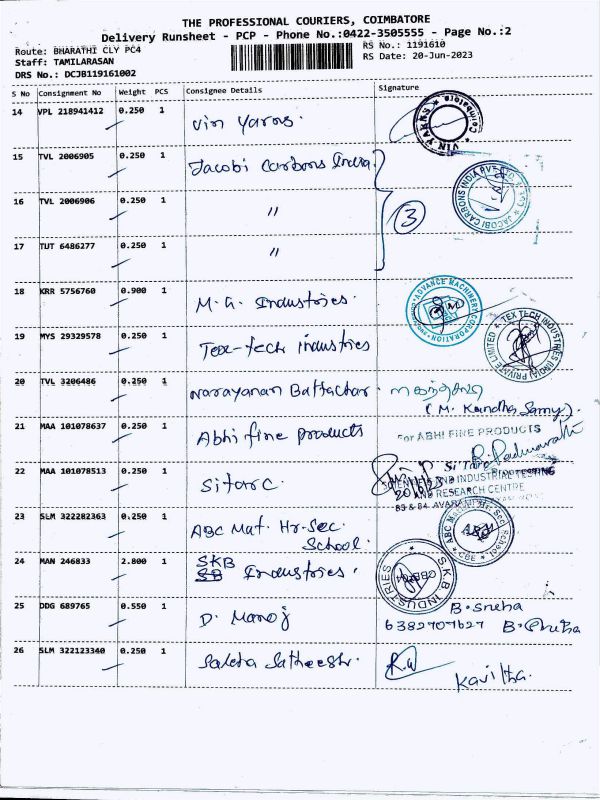 THE PROFESSIONAL COURIERS, COIMBATORE
Delivery Runsheet - PCP - Phone No.:0422-3505555 - Page No.:2
Route: BHARATHI CLY PC4
RS No.: 1191610
Staff: TAMILARASAN
RS Date: 20-Jun-2023
DRS No.: DCJB119161002
S No Consignment No Weight PCS Consignee Details Signature
14 VPL 218941412 0.250 1 Vin Yarns.
VIN YARNS Coimbatore
15 TVL 2006905 0.250 1 Jacobi Carbons India
JACOBI CARBONS INDIA PVT LTD
16 TVL 2006906 0.250 1 "
3
17 TUT 6486277 0.250 1 "
18 KRR 5756760 0.900 1 M.G. Industries.
ADVANCE MACHINERY CORPORATION
19 MYS 29329578 0.250 1 Tex-tech industries
TEX TECH INDUSTRIES (INDIA) PRIVATE LIMITED
20 TVL 3206486 0.250 1 Narayanan Battachar.
(M. Kandha Samy).
21 MAA 101078637 0.250 1 Abhi fine products
For ABHI FINE PRODUCTS
22 MAA 101078513 0.250 1 Sitarc.
SITARC
AND INDUSTRIAL TESTING
AND RESEARCH CENTRE
83 & 84, AVARAMPALAYAM
23 SLM 322282363 0.250 1 ABC Mat. Hr-Sec.
School.
24 MAN 246833 2.800 1 SKB
SB Industries.
S.K.B INDUSTRIES
25 DDG 689765 0.550 1 D. Manoj
B. Sneha
6382707627
26 SLM 322123340 0.250 1
Kavitha.